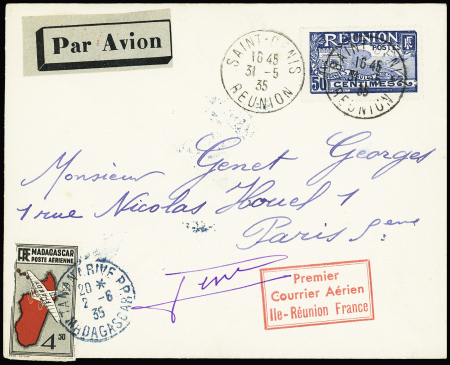 Par Avion
SAINT-DENIS
16 45
31 -5
35
REUNION
REUNION
POSTES
RF
50 CENTIMES 65
16 45
35
REUNION
Monsieur Genet Georges
1 rue Nicolas Houel 1
Paris 5eme
RF MADAGASCAR
POSTE AÉRIENNE
4 50
TANANARIVE RP
20 *
2 -6
35
MADAGASCAR
Premier
Courrier Aérien
Ile-Réunion France